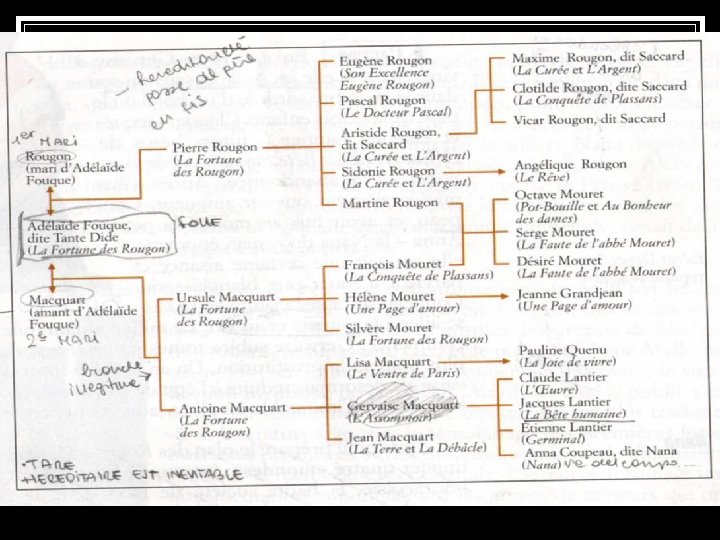 hereditarieté
passe del père
en fis
1er MARI
Rougon
(mari d'Adélaïde
Fouque)
Adélaïde Fouque,
dite Tante Dide
(La Fortune des Rougon)
FOLLE
Macquart
(amant d'Adélaïde
Fouque)
2e MARI
branche
illegitime
Pierre Rougon
(La Fortune
des Rougon)
Ursule Macquart
(La Fortune
des Rougon)
Antoine Macquart
(La Fortune
des Rougon)
Eugène Rougon
(Son Excellence
Eugène Rougon)
Pascal Rougon
(Le Docteur Pascal)
Aristide Rougon,
dit Saccard
(La Curée et L'Argent)
Sidonie Rougon
(La Curée et L'Argent)
Martine Rougon
François Mouret
(La Conquête de Plassans)
Hélène Mouret
(Une Page d'amour)
Silvère Mouret
(La Fortune des Rougon)
Lisa Macquart
(Le Ventre de Paris)
Gervaise Macquart
(L'Assommoir)
Jean Macquart
(La Terre et La Débâcle)
Maxime Rougon, dit Saccard
(La Curée et L'Argent)
Clotilde Rougon, dite Saccard
(La Conquête de Plassans)
Vicar Rougon, dit Saccard
Angélique Rougon
(Le Rêve)
Octave Mouret
(Pot-Bouille et Au Bonheur
des dames)
Serge Mouret
(La Faute de l'abbé Mouret)
Désiré Mouret
(La Faute de l'abbé Mouret)
Jeanne Grandjean
(Une Page d'amour)
Pauline Quenu
(La Joie de vivre)
Claude Lantier
(L'Œuvre)
Jacques Lantier
(La Bête humaine)
Étienne Lantier
(Germinal)
Anna Coupeau, dite Nana
(Nana)
• TARE
HEREDITAIRE EST INEVITABLE